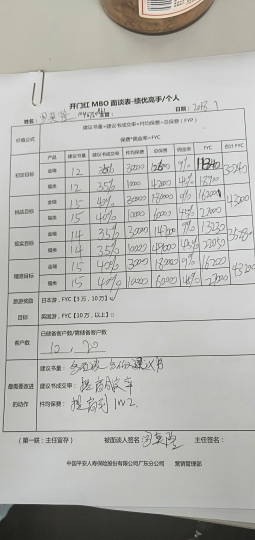 开门红 MBO 面谈表-绩优高手/个人
姓名: 日期: 2018.1
价值公式 建议书量*建议书成交率*件均保费=总保费（FYP）
保费*佣金率=FYC
产品 建议书量 建议书成交率 件均保费 总保费 佣金率 FYC 合计FYC
初定目标 金瑞 12 35% 30000 9%
福 12 35% 10000 42000
挑战目标 金瑞 15 40% 30000 180000 9% 16200 43200
福 15 40% 10000 60000 45% 27000
现实目标 金瑞 14 35% 30000 147000 9% 13230 35280
福 14 35% 10000 49000 45% 22050
理想目标 金瑞 15 40% 30000 180000 9% 16200 43200
福 15 40% 10000 60000 45% 27000
旅游奖励 日本游，FYC【3万，10万】
目标 英国游，FYC【10万，以上】
客户数 已储备客户数/需储备客户数
10 , 20
建议书量: 多面谈 多做建议书
最需要改进 建议书成交率: 提高成交率
的动作 件均保费: 提高到1W2.
（第一联：主任留存） 被面谈人签名: 主任签名:
中国平安人寿保险股份有限公司广东分公司 营销管理部